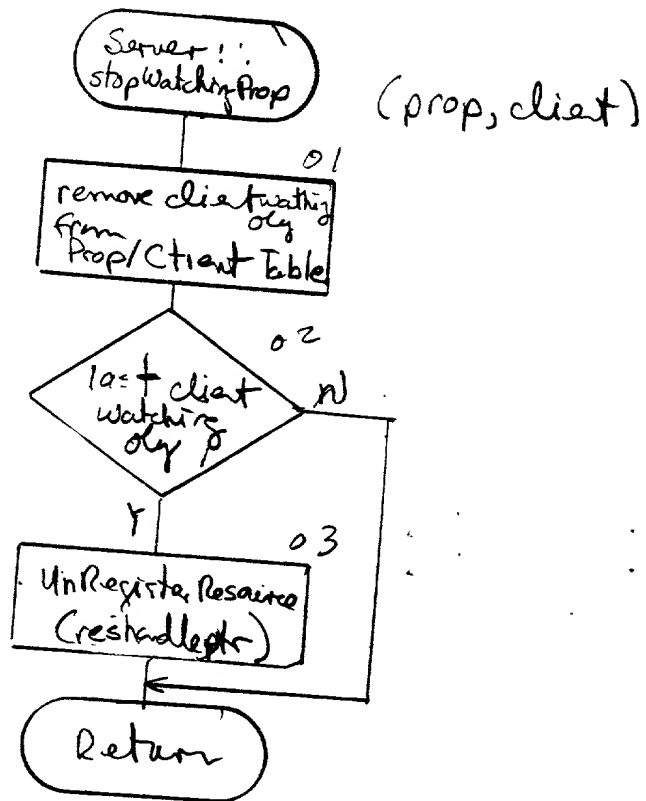 Server::
stopWatchingProp
(prop, client)
01
remove client watching
obj
from
Prop/Client Table
02
last client
watching
obj p
N
Y
03
UnRegisterResource
(reshandleptr)
Return